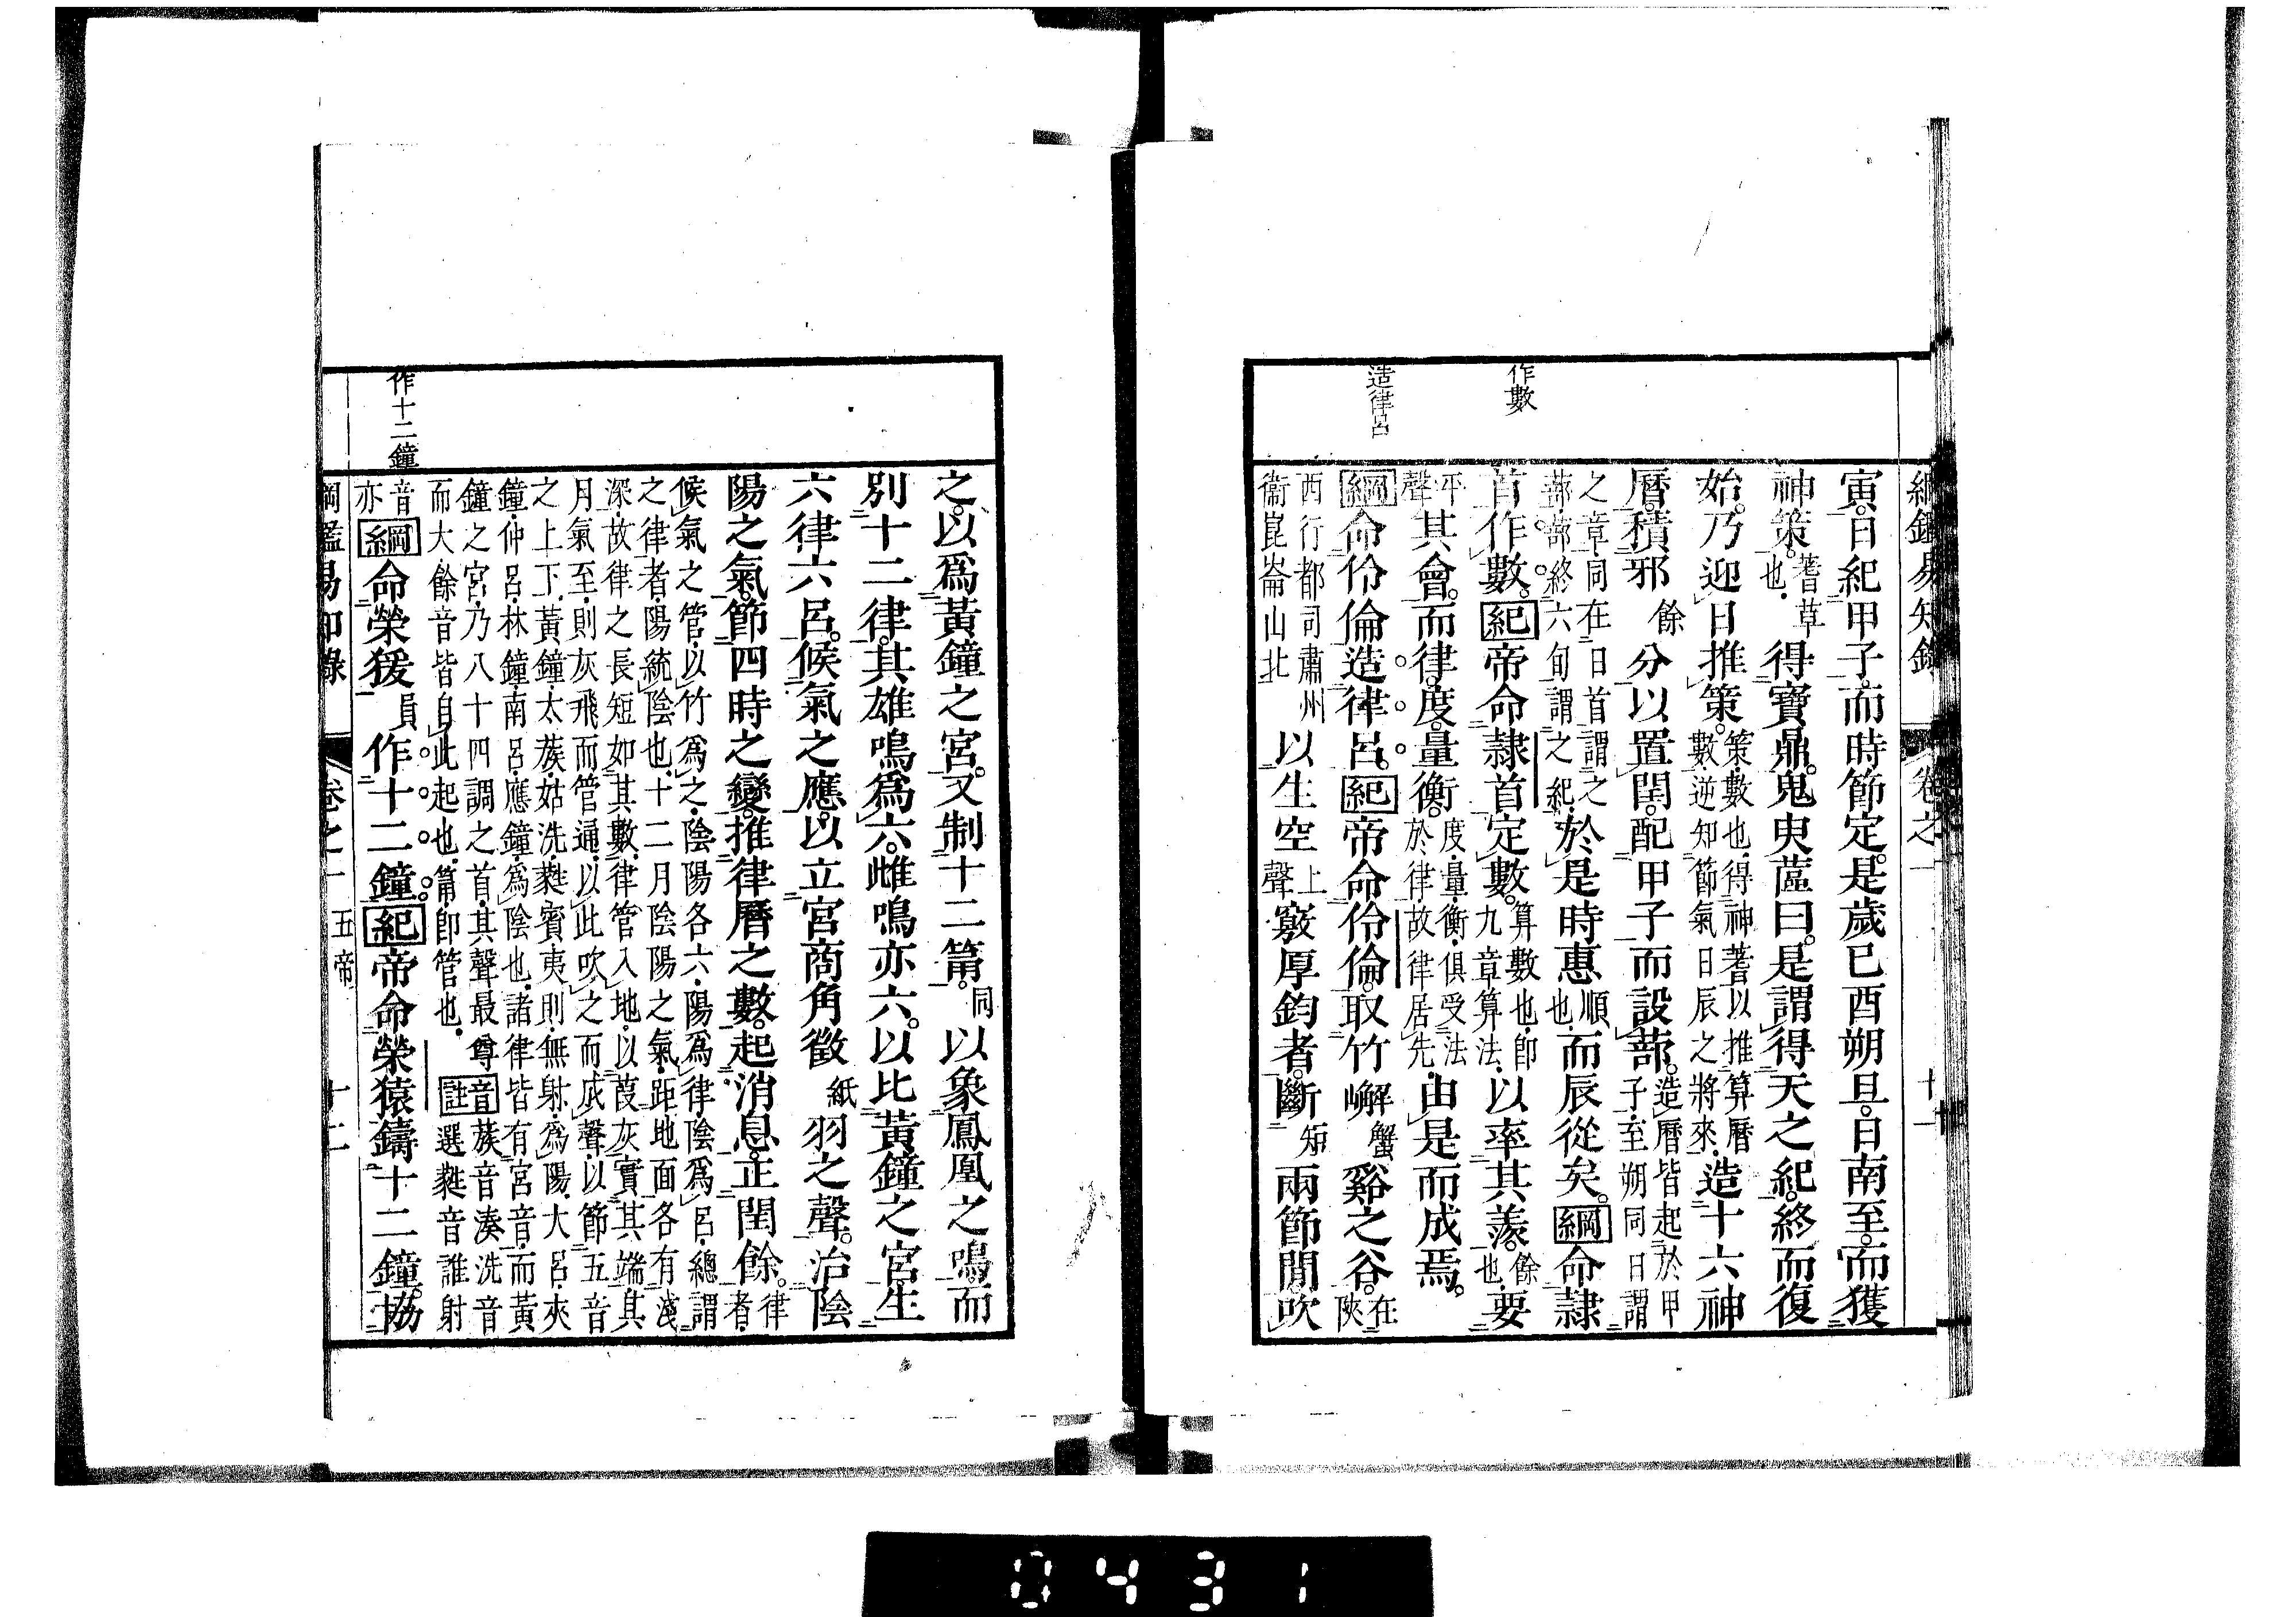 綱鑑易知錄 卷之一 十一
作數
造律呂
寅。日紀甲子。而時節定。是歲已酉朔旦。日南至。而獲
神策。蓍草也。得寶鼎。鬼臾蓲曰。是謂得天之紀。終而復
始。乃迎日推策。策數也。得神蓍以推算曆數。逆知節氣日辰之將來。造十六神
曆。積邪餘分以置閏。配甲子而設蔀。造曆皆起於甲子。至朔同日謂
之章。同在日首謂之蔀。蔀終六旬謂之紀。於是時惠順也。而辰從矣。綱命隷
首作數。紀帝命隷首定數。算數也。卽九章算法。以率其羨。餘也。要
其會。而律。度。量衡。度。量。衡。俱受法於律。故律居先。由是而成焉。
平聲
綱命伶倫造律呂。紀帝命伶倫。取竹嶰蟹谿之谷。在陝
西行都司肅州衞崑崙山北以生空上聲竅厚鈞者。斷短兩節間。吹
之。以爲黃鐘之宮。又制十二筩。同以象鳳凰之鳴。而
別十二律。其雄鳴爲六。雌鳴亦六。以比黃鐘之宮。生
六律六呂。候氣之應。以立宮商角徵紙羽之聲。治陰
陽之氣。節四時之變。推律曆之數。起消息。正閏餘。律者。
候氣之管。以竹爲之。陰陽各六。陽爲律陰爲呂。總謂
之律者。陽統陰也。十二月陰陽之氣。距地面各有淺
深。故律之長短如其數。律管入地。以葭灰實其端。其
月氣至。則灰飛而管通。以此吹之而成聲。以節五音
之上下。黃鐘。太蔟。姑洗。蕤賓。夷則。無射。爲陽。大呂。夾
鐘。仲呂。林鐘。南呂。應鐘。爲陰也。諸律皆有宮音。而黃
鐘之宮。乃八十四調之首。其聲最尊
而大。餘音皆自此起也。筩。卽管也。
音註 蔟音湊洗音選蕤音誰射
音亦 綱命榮猨員作十二鐘。紀帝命榮猿。鑄十二鐘。協
作十二鐘
綱鑑易知錄 卷之一 五帝 十二
0431